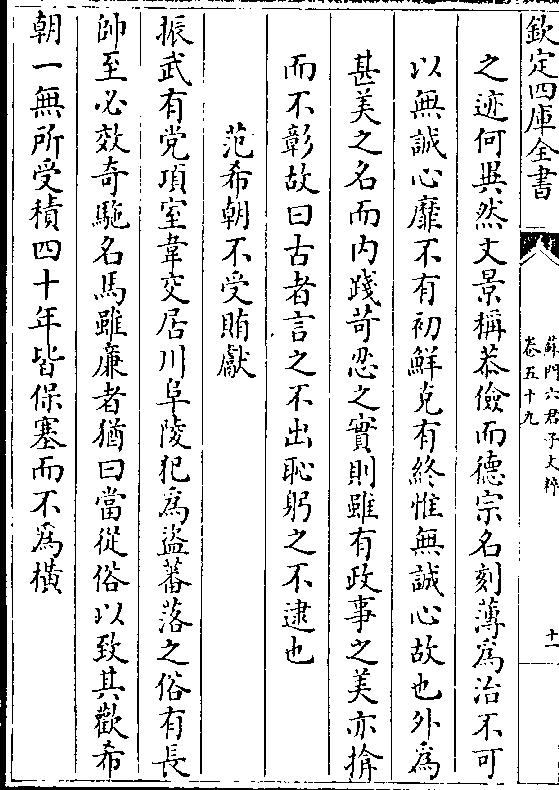 欽定四庫全書
蘇門六君子文粹
卷五十九
十一
之迹何異然文景稱恭儉而德宗名刻薄爲治不可
以無誠心靡不有初鮮克有終惟無誠心故也外爲
甚美之名而内踐苛忍之實則雖有政事之美亦揜
而不彰故曰古者言之不出恥躬之不逮也
范希朝不受賄獻
振武有党項室韋交居川阜陵犯爲盜蕃落之俗有長
帥至必效奇駞名馬雖廉者猶曰當從俗以致其歡希
朝一無所受積四十年皆保塞而不爲橫